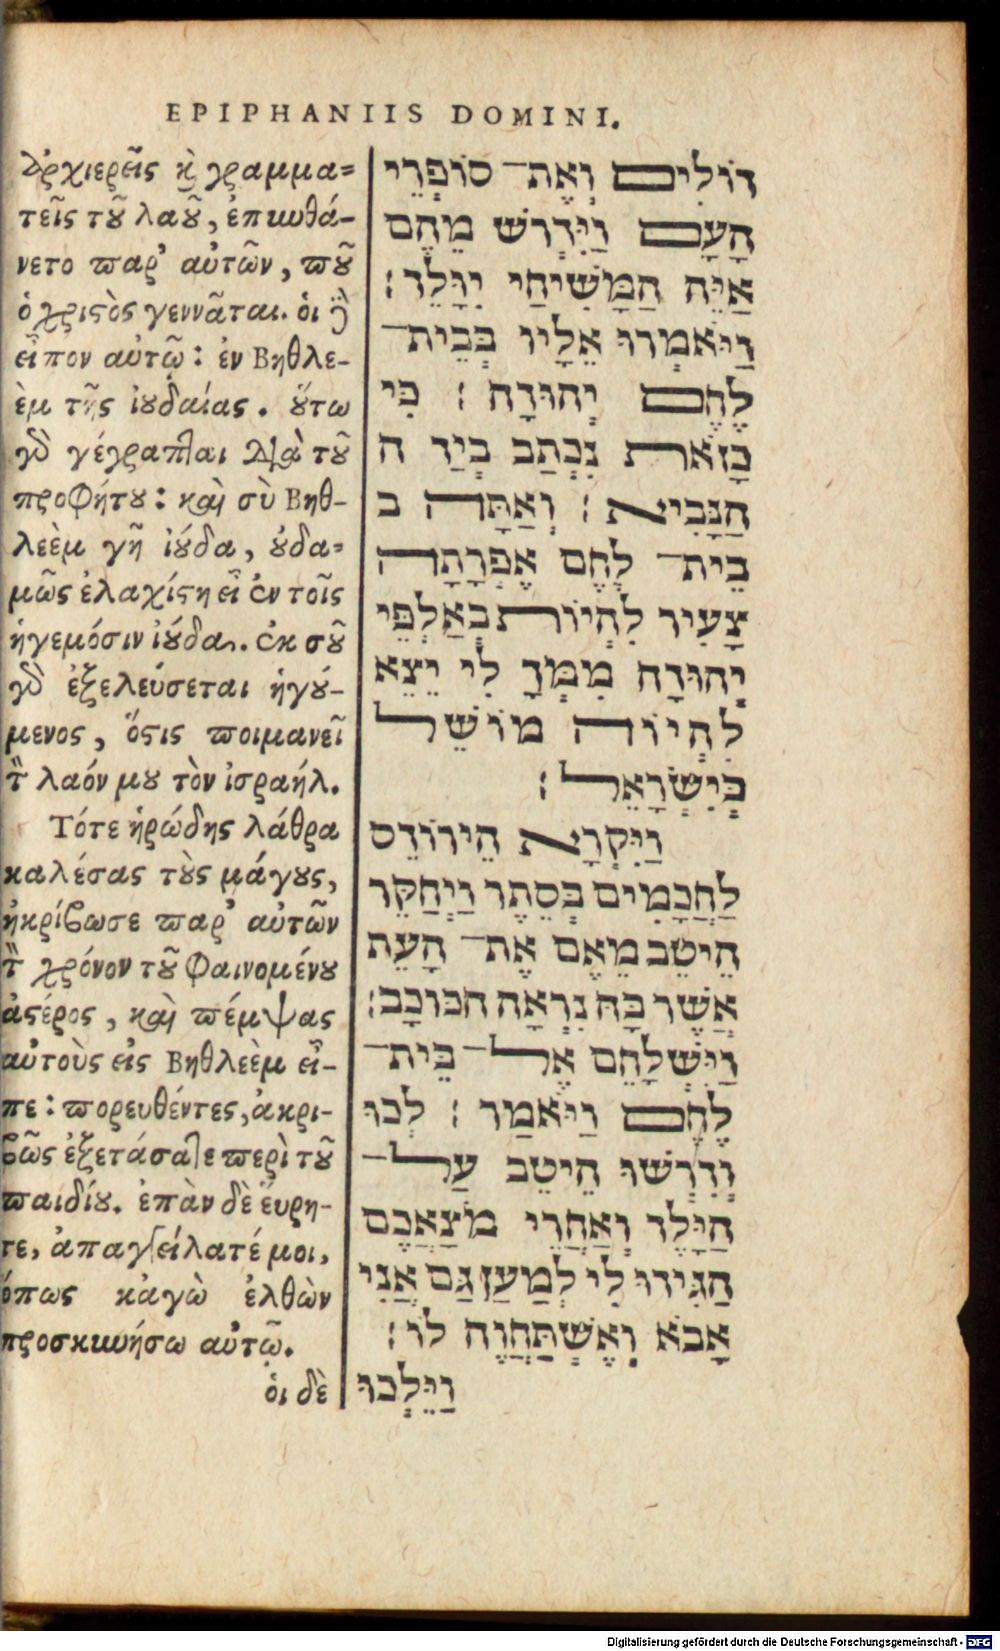 EPIPHANIIS DOMINI.
ἀρχιερεῖς κ̀ γραμμα-
τεῖς τȣ͂ λαȣ͂, ἐπυνθά-
νετο παρ' αὐτῶν, πȣ͂
ὁ χριϛὸς γεννᾶται. ὁι δὲ
εἶπον αὐτῷ: ἐν Βηθλε-
ὲμ τῆς ἰουδαίας. ȣ̔́τω
γὸ γέγραπται διὰ τȣ͂
προφήτȣ: καὶ σὺ Βηθ-
λεὲμ γῆ ἰȣ́δα, ȣ̓δα-
μῶς ἐλαχίϛη εἶ ἐν τοῖς
ἡγεμόσιν ἰȣ́δα. ἐκ σȣ͂
γὸ ἐξελεύσεται ἡγȣ́-
μενος, ὅϛις ποιμανεῖ
τὸν λαόν μȣ τὸν ἰσραήλ.
Τότε ἡρώδης λάθρα
καλέσας τȣ̀ς μάγȣς,
ἠκρίβωσε παρ' αὐτῶν
τὸν χρόνον τȣ͂ φαινομένȣ
ἀϛέρος, καὶ πέμψας
αὐτοὺς εἰς Βηθλεὲμ εἶ-
πε: πορευθέντες, ἀκρι-
βῶς ἐξετάσατε περὶ τȣ͂
παιδίȣ. ἐπὰν δὲ ἕυρη-
τε, ἀπαγγείλατέ μοι,
ὅπως κἀγὼ ἐλθὼν
προσκυνήσω αὐτῷ.
ὁι δὲ
דוֹלִים וְאֶת־ סוֹפְרֵי
הָעָם וַיִּדְרֹשׁ מֵהֶם
אַיֵּה הַמָּשִׁיחַי יִוָּלֵד׃
וַיֹּאמְרוּ אֵלָיו בְּבֵית־
לֶחֶם יְהוּדָה ׃ כִּי
כָזֹאת נִכְתַּב בְּיַד ה
הַנָּבִיא ׃ וְאַתָּה ב
בֵית־ לֶחֶם אֶפְרָתָה
צָעִיר לִהְיוֹת בְּאַלְפֵי
יְהוּדָה מִמְּךָ לִי יֵצֵא
לִהְיוֹה מוֹשֵׁל
בְּיִשְׂרָאֵל׃
וַיִּקְרָא הֵירוֹדֵס
לַחֲכָמִים בְּסֵתֶר וַיְחַקֵּר
הֵיטֵב מֵאֶם אֶת־ הָעֵת
אֲשֶׁר בָּהּ נִרְאָה הכּוֹכָב׃
וַיִּשְׁלָחֵם אֶל־ בֵּית־
לֶחֶם וַיֹּאמַר ׃ לְכוּ
וְדִרְשׁוּ הֵיטֵב עַל־
הַיָּלֶד וְאַחֲרֵי מֹצָאֲכֶם
הַגִּידוּ לִי לְמַעַן גַּם אֲנִי
אָבֹא וְאֶשְׁתַּחֲוֶה לוֹ׃
וַיֵּלְכוּ
Digitalisierung gefördert durch die Deutsche Forschungsgemeinschaft - DFG